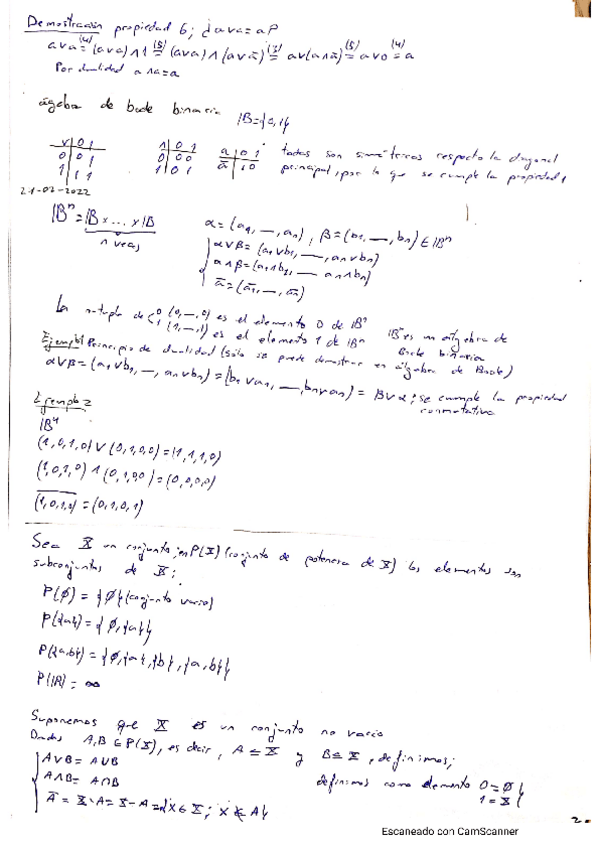 Demostración propiedad 6; ¿a∨a=a?
a∨a =(4) (a∨a)∧1 =(5) (a∨a)∧(a∨ā) =(3) a∨(a∧ā) =(5) a∨0 =(4) a
Por dualidad a∧a=a
álgebra de boole binaria IB={0,1}
∨ 0 1 ∧ 0 1 a 0 1 todas son simétricas respecto la diagonal
0 0 1 0 0 0 ā 1 0 principal, por lo que se cumple la propiedad 1
1 1 1 1 0 1
21-02-2022
IBⁿ = IB x ... x IB α = (a₁, —, aₙ), β = (b₁, —, bₙ) ∈ IBⁿ
n veces
α∨β = (a₁∨b₁, —, aₙ∨bₙ)
α∧β = (a₁∧b₁, — aₙ∧bₙ)
ᾱ = (ā₁, —, āₙ)
La n-tupla de 0 (0, —, 0) es el elemento 0 de IBⁿ IBⁿ es un álgebra de
1 (1, —, 1) es el elemento 1 de IBⁿ Boole binaria
Ejemplo 1 Principio de dualidad (solo se puede demostrar en álgebra de Boole)
α∨β = (a₁∨b₁, —, aₙ∨bₙ) = (b₁∨a₁, —, bₙ∨aₙ) = β∨α; se cumple la propiedad
conmutativa
Ejemplo 2
IB⁴
(1,0,1,0) ∨ (0,1,0,0) = (1,1,1,0)
(1,0,1,0) ∧ (0,1,0,0) = (0,0,0,0)
(1,0,1,0) = (0,1,0,1)
Sea X un conjunto; en P(X) (conjunto de potencia de X) los elementos son
subconjuntos de X;
P(∅) = {∅} (conjunto vacio)
P({a}) = {∅,{a}}
P({a,b}) = {∅,{a},{b},{a,b}}
P(IR) = ∞
Suponemos que X es un conjunto no vacio
Dados A,B ∈ P(X), es decir, A ⊆ X y B ⊆ X, definimos;
A∨B = A∪B definimos como elemento 0 = ∅
A∧B = A∩B 1 = X
Ā = X\A = X-A = {x ∈ X; x ∉ A}
2
Escaneado con CamScanner